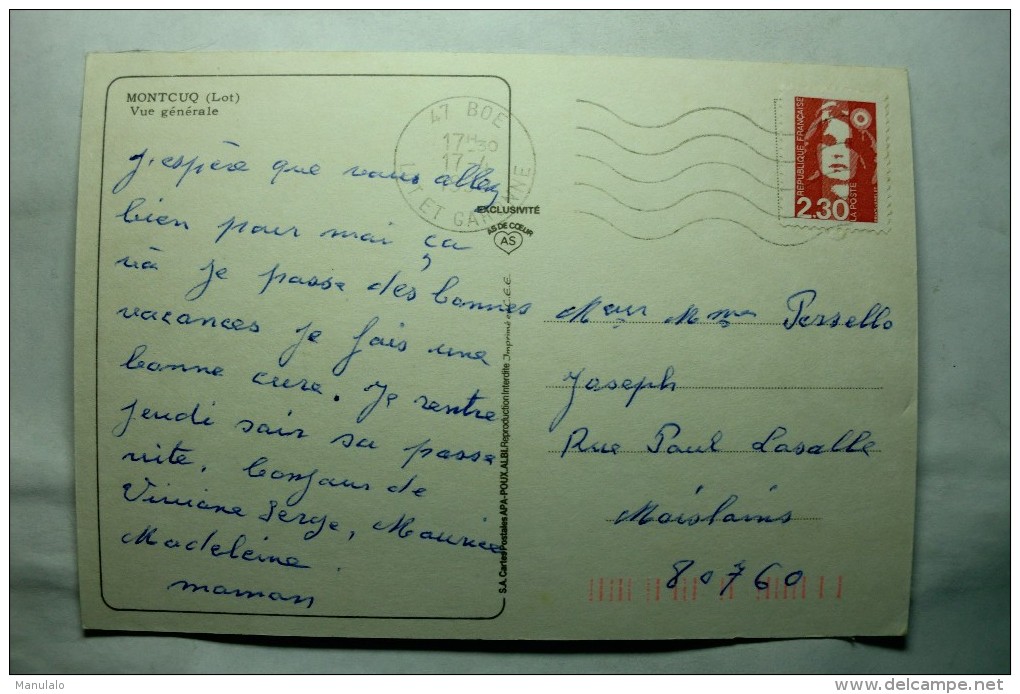 MONTCUQ (Lot)
Vue générale
J'espère que vous allez
bien pour moi ça
và Je passe des bonnes
vacances Je fais une
bonne cure. Je rentre
Jeudi soir sa passe
vite. bonjour de
Viviane Serge, Maurice
Madeleine.
maman
47 BOE
17H30
17-4
LOT ET GARONNE
EXCLUSIVITÉ
AS DE CŒUR
AS
S.A. Cartes Postales APA-POUX, ALBI. Reproduction Interdite Imprimé en C.E.E.
RÉPUBLIQUE FRANÇAISE
2,30
LA POSTE
M eur Mme Persello
Joseph
Rue Paul Lasalle
Moislains
80760
Manulalo
www.delcampe.net